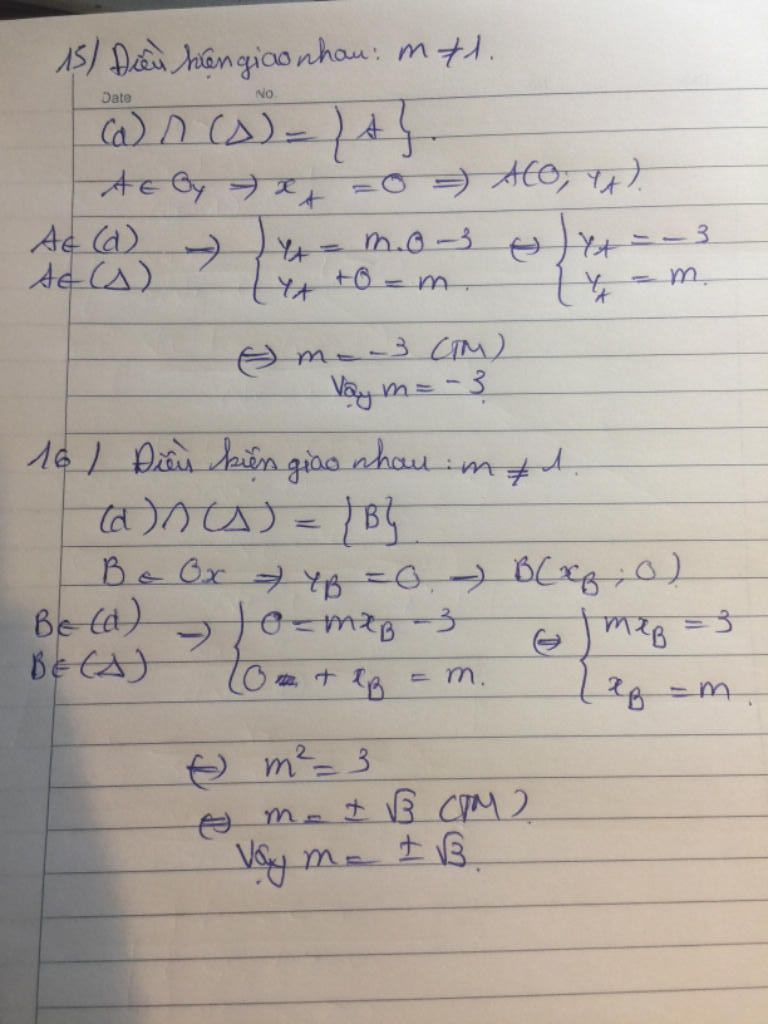 15/ Điều kiện giao nhau: m ≠ 1.
Date No.
(d) ∩ (Δ) = {A}.
A ∈ Oy ⇒ x_A = 0 ⇒ A(0; y_A).
A ∈ (d) → { y_A = m.0 - 3 ⇔ { y_A = -3
A ∈ (Δ) { y_A + 0 = m. { y_A = m.
⇔ m = -3 (TM)
Vậy m = -3.
16/ Điều kiện giao nhau: m ≠ 1.
(d) ∩ (Δ) = {B}.
B ∈ Ox ⇒ y_B = 0. → B(x_B; 0)
B ∈ (d) → { 0 = mx_B - 3 ⇔ { mx_B = 3
B ∈ (Δ) { 0 + x_B = m. { x_B = m.
⇔ m² = 3
⇔ m = ± √3 (TM).
Vậy m = ± √3.